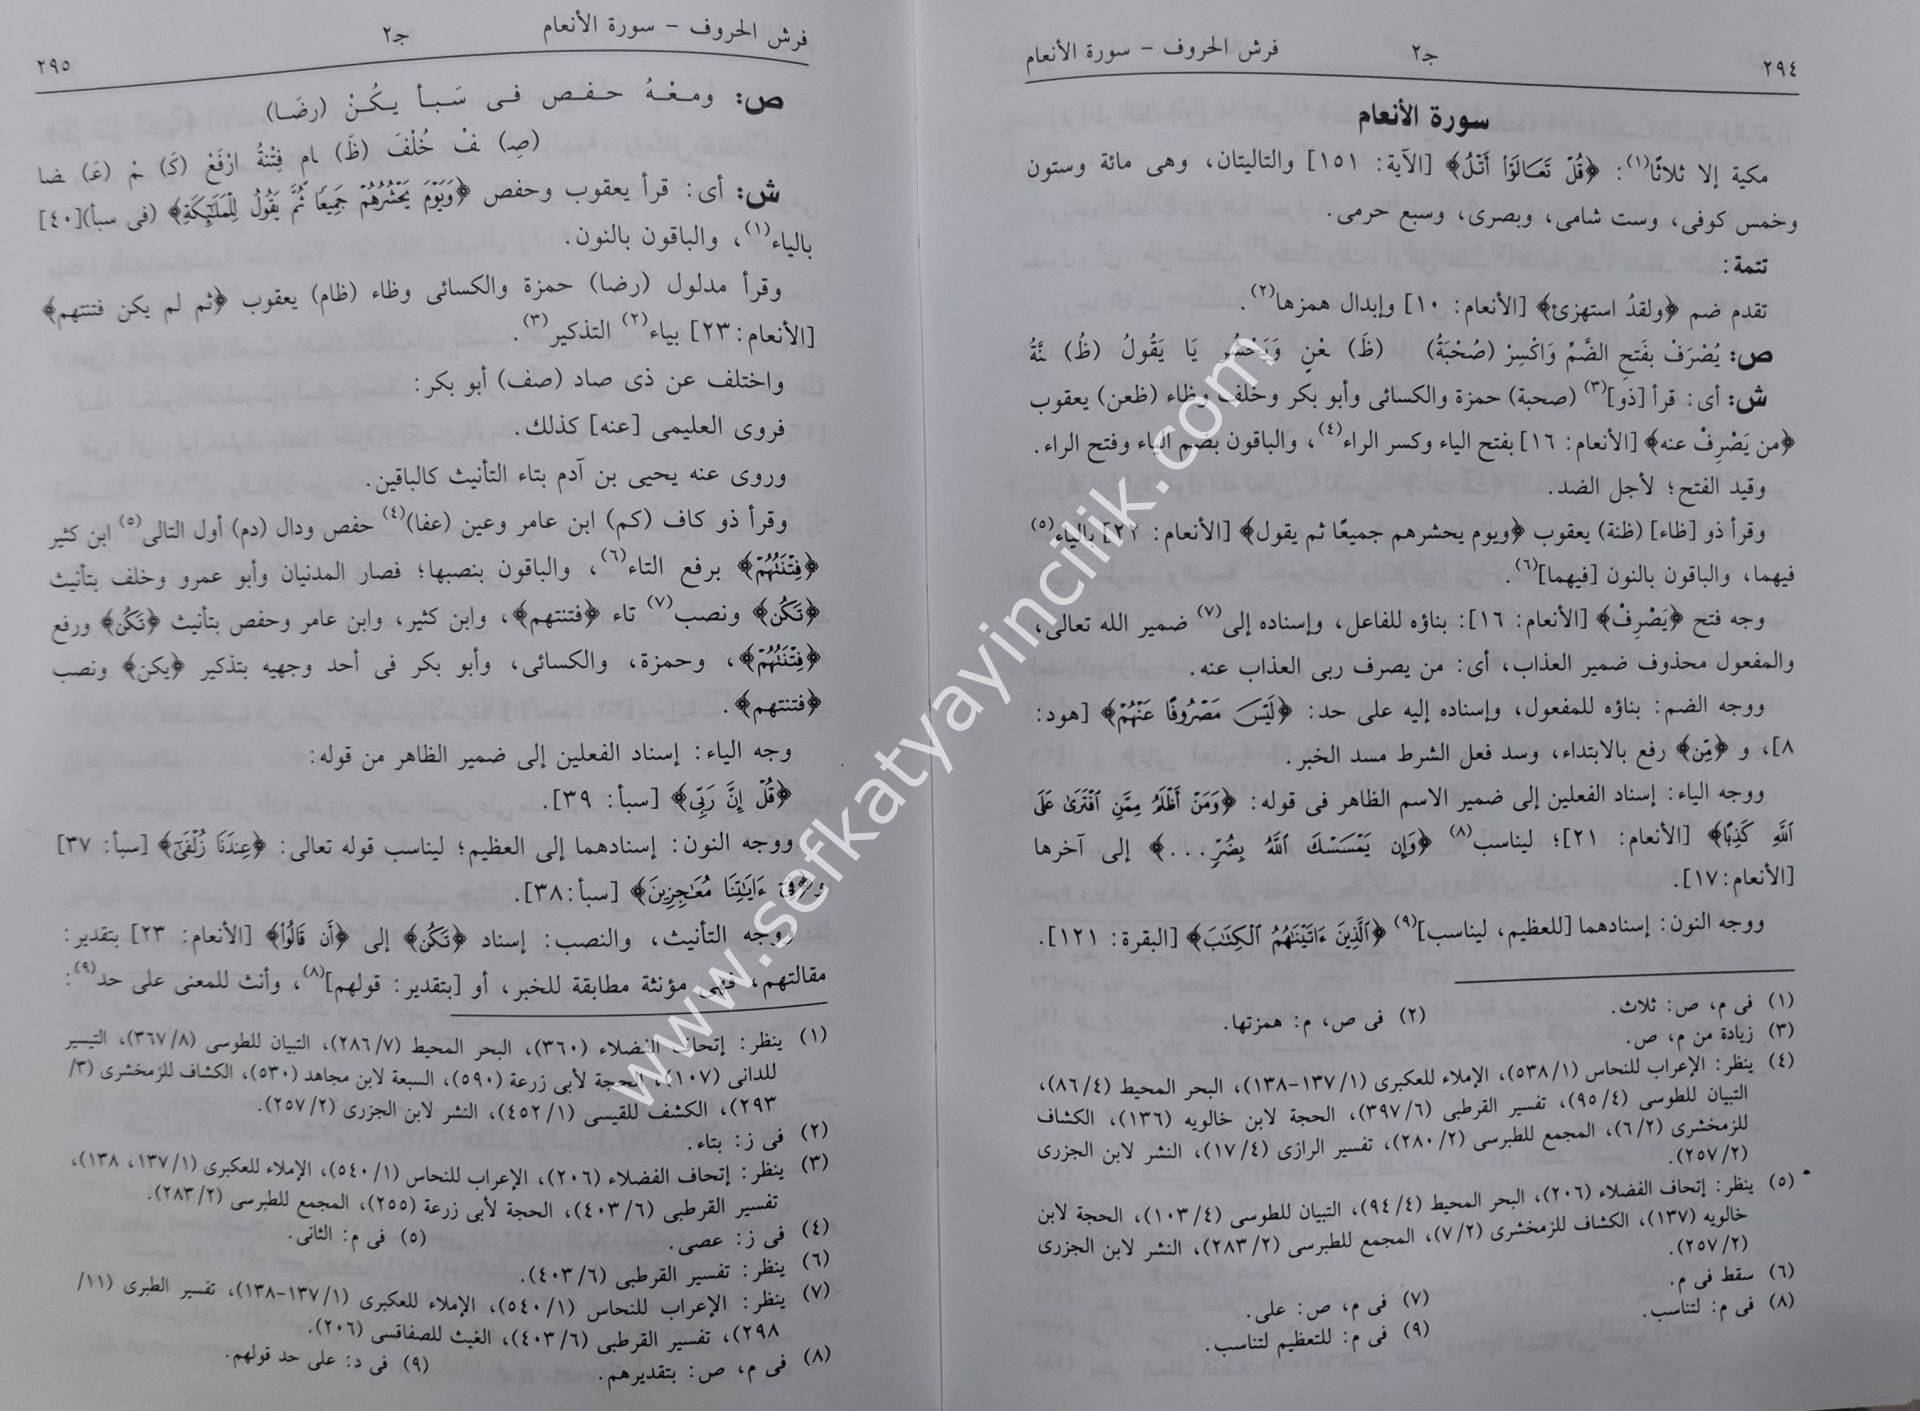 ٢٩٤
جـ٢
فرش الحروف – سورة الأنعام
سورة الأنعام
مكية إلا ثلاثًا(١): ﴿قُلْ تَعَالَوْا أَتْلُ﴾ [الآية: ١٥١] والتاليتان، وهى مائة وستون
وخمس كوفى، وست شامى، وبصرى، وسبع حرمى.
تتمة:
تقدم ضم ﴿ولقدُ استهزئ﴾ [الأنعام: ١٠] وإبدال همزها(٢).
ص: يُصْرَفْ بفَتحِ الضَّمِّ وَاكْسِرْ (صُحْبَةُ) (ظَ) ـعْنٍ وَيَحْشُر يَا يَقُولُ (ظُ) ـنَّةُ
ش: أى: قرأ [ذو](٣) (صحبة) حمزة والكسائى وأبو بكر وخلف وظاء (ظعن) يعقوب
﴿من يَصْرِفْ عنه﴾ [الأنعام: ١٦] بفتح الياء وكسر الراء(٤)، والباقون بضم الياء وفتح الراء.
وقيد الفتح؛ لأجل الضد.
وقرأ ذو [ظاء] (ظنة) يعقوب ﴿ويوم يحشرهم جميعًا ثم يقول﴾ [الأنعام: ٢٢] بالياء(٥)
فيهما، والباقون بالنون [فيهما](٦).
وجه فتح ﴿يَصْرِفْ﴾ [الأنعام: ١٦]: بناؤه للفاعل، وإسناده إلى(٧) ضمير الله تعالى،
والمفعول محذوف ضمير العذاب، أى: من يصرف ربى العذاب عنه.
ووجه الضم: بناؤه للمفعول، وإسناده إليه على حد: ﴿لَيْسَ مَصْرُوفًا عَنْهُمْ﴾ [هود:
٨]، و ﴿مِّن﴾ رفع بالابتداء، وسد فعل الشرط مسد الخبر.
ووجه الياء: إسناد الفعلين إلى ضمير الاسم الظاهر فى قوله: ﴿وَمَنْ أَظْلَمُ مِمَّنِ افْتَرَىٰ عَلَى
اللَّهِ كَذِبًا﴾ [الأنعام: ٢١]؛ ليناسب(٨) ﴿وَإِن يَمْسَسْكَ اللَّهُ بِضُرٍّ...﴾ إلى آخرها
[الأنعام:١٧].
ووجه النون: إسنادهما [للعظيم، ليناسب](٩) ﴿الَّذِينَ ءَاتَيْنَاهُمُ الْكِتَابَ﴾ [البقرة: ١٢١].
(١) فى م، ص: ثلاث.
(٢) فى ص، م: همزتها.
(٣) زيادة من م، ص.
(٤) ينظر: الإعراب للنحاس (٥٣٨/١)، الإملاء للعكبرى (١٣٧/١-١٣٨)، البحر المحيط (٨٦/٤)،
التبيان للطوسى (٩٥/٤)، تفسير القرطبى (٣٩٧/٦)، الحجة لابن خالويه (١٣٦)، الكشاف
للزمخشرى (٦/٢)، المجمع للطبرسى (٢٨٠/٢)، تفسير الرازى (١٧/٤)، النشر لابن الجزرى
(٢٥٧/٢).
(٥) ينظر: إتحاف الفضلاء (٢٠٦)، البحر المحيط (٩٤/٤)، التبيان للطوسى (١٠٣/٤)، الحجة لابن
خالويه (١٣٧)، الكشاف للزمخشرى (٧/٢)، المجمع للطبرسى (٢٨٣/٢)، النشر لابن الجزرى
(٢٥٧/٢).
(٦) سقط فى م.
(٧) فى م، ص: على.
(٨) فى م: لتناسب.
(٩) فى م: للتعظيم لتناسب.
فرش الحروف – سورة الأنعام
جـ٢
٢٩٥
ص: ومـعْـهُ حـفـص فـى سَـبـأ يـكُـنْ (رضَـا)
(صِـ) ـفْ خُلْفَ (ظَـ) ـام فِتْنةُ ارْفَعْ (كَـ) ـمْ (عَـ) ـضا
ش: أى: قرأ يعقوب وحفص ﴿وَيَوْمَ يَحْشُرُهُمْ جَمِيعًا ثُمَّ يَقُولُ لِلْمَلَٰٓئِكَةِ﴾ (فى سبأ)[٤٠]
بالياء(١)، والباقون بالنون.
وقرأ مدلول (رضا) حمزة والكسائى وظاء (ظام) يعقوب ﴿ثم لم يكن فتنتهم﴾
[الأنعام:٢٣] بياء(٢) التذكير(٣).
واختلف عن ذى صاد (صف) أبو بكر:
فروى العليمى [عنه] كذلك.
وروى عنه يحيى بن آدم بتاء التأنيث كالباقين.
وقرأ ذو كاف (كم) ابن عامر وعين (عفا)(٤) حفص ودال (دم) أول التالى(٥) ابن كثير
﴿فِتْنَتُهُمْ﴾ برفع التاء(٦)، والباقون بنصبها؛ فصار المدنيان وأبو عمرو وخلف بتأنيث
﴿تَكُن﴾ ونصب(٧) تاء ﴿فتنتهم﴾، وابن كثير، وابن عامر وحفص بتأنيث ﴿تَكُن﴾ ورفع
﴿فِتْنَتُهُمْ﴾، وحمزة، والكسائى، وأبو بكر فى أحد وجهيه بتذكير ﴿يكن﴾ ونصب
﴿فتنتهم﴾.
وجه الياء: إسناد الفعلين إلى ضمير الظاهر من قوله:
﴿قُلْ إِنَّ رَبِّى﴾ [سبأ: ٣٩].
ووجه النون: إسنادهما إلى العظيم؛ ليناسب قوله تعالى: ﴿عِندَنَا زُلْفَىٰٓ﴾ [سبأ: ٣٧]
و﴿فِىٓ ءَايَٰتِنَا مُعَٰجِزِينَ﴾ [سبأ:٣٨].
ووجه التأنيث، والنصب: إسناد ﴿تَكُن﴾ إلى ﴿أَن قَالُوا﴾ [الأنعام: ٢٣] بتقدير:
مقالتهم، فهى مؤنثة مطابقة للخبر، أو [بتقدير: قولهم](٨)، وأنث للمعنى على حد(٩):
(١) ينظر: إتحاف الفضلاء (٣٦٠)، البحر المحيط (٢٨٦/٧)، التبيان للطوسى (٣٦٧/٨)، التيسير
للدانى (١٠٧)، الحجة لأبى زرعة (٥٩٠)، السبعة لابن مجاهد (٥٣٠)، الكشاف للزمخشرى (٣/
٢٩٣)، الكشف للقيسى (٤٥٢/١)، النشر لابن الجزرى (٢٥٧/٢).
(٢) فى ز: بتاء.
(٣) ينظر: إتحاف الفضلاء (٢٠٦)، الإعراب للنحاس (٥٤٠/١)، الإملاء للعكبرى (١٣٧/١، ١٣٨)،
تفسير القرطبى (٤٠٣/٦)، الحجة لأبى زرعة (٢٥٥)، المجمع للطبرسى (٢٨٣/٢).
(٤) فى ز: عصى.
(٥) فى م: الثانى.
(٦) ينظر: تفسير القرطبى (٤٠٣/٦).
(٧) ينظر: الإعراب للنحاس (٥٤٠/١)، الإملاء للعكبرى (١٣٧/١-١٣٨)، تفسير الطبرى (١١/
٢٩٨)، تفسير القرطبى (٤٠٣/٦)، الغيث للصفاقسى (٢٠٦).
(٨) فى م، ص: بتقديرهم.
(٩) فى د: على حد قولهم.
www.sefkatyayincilik.com